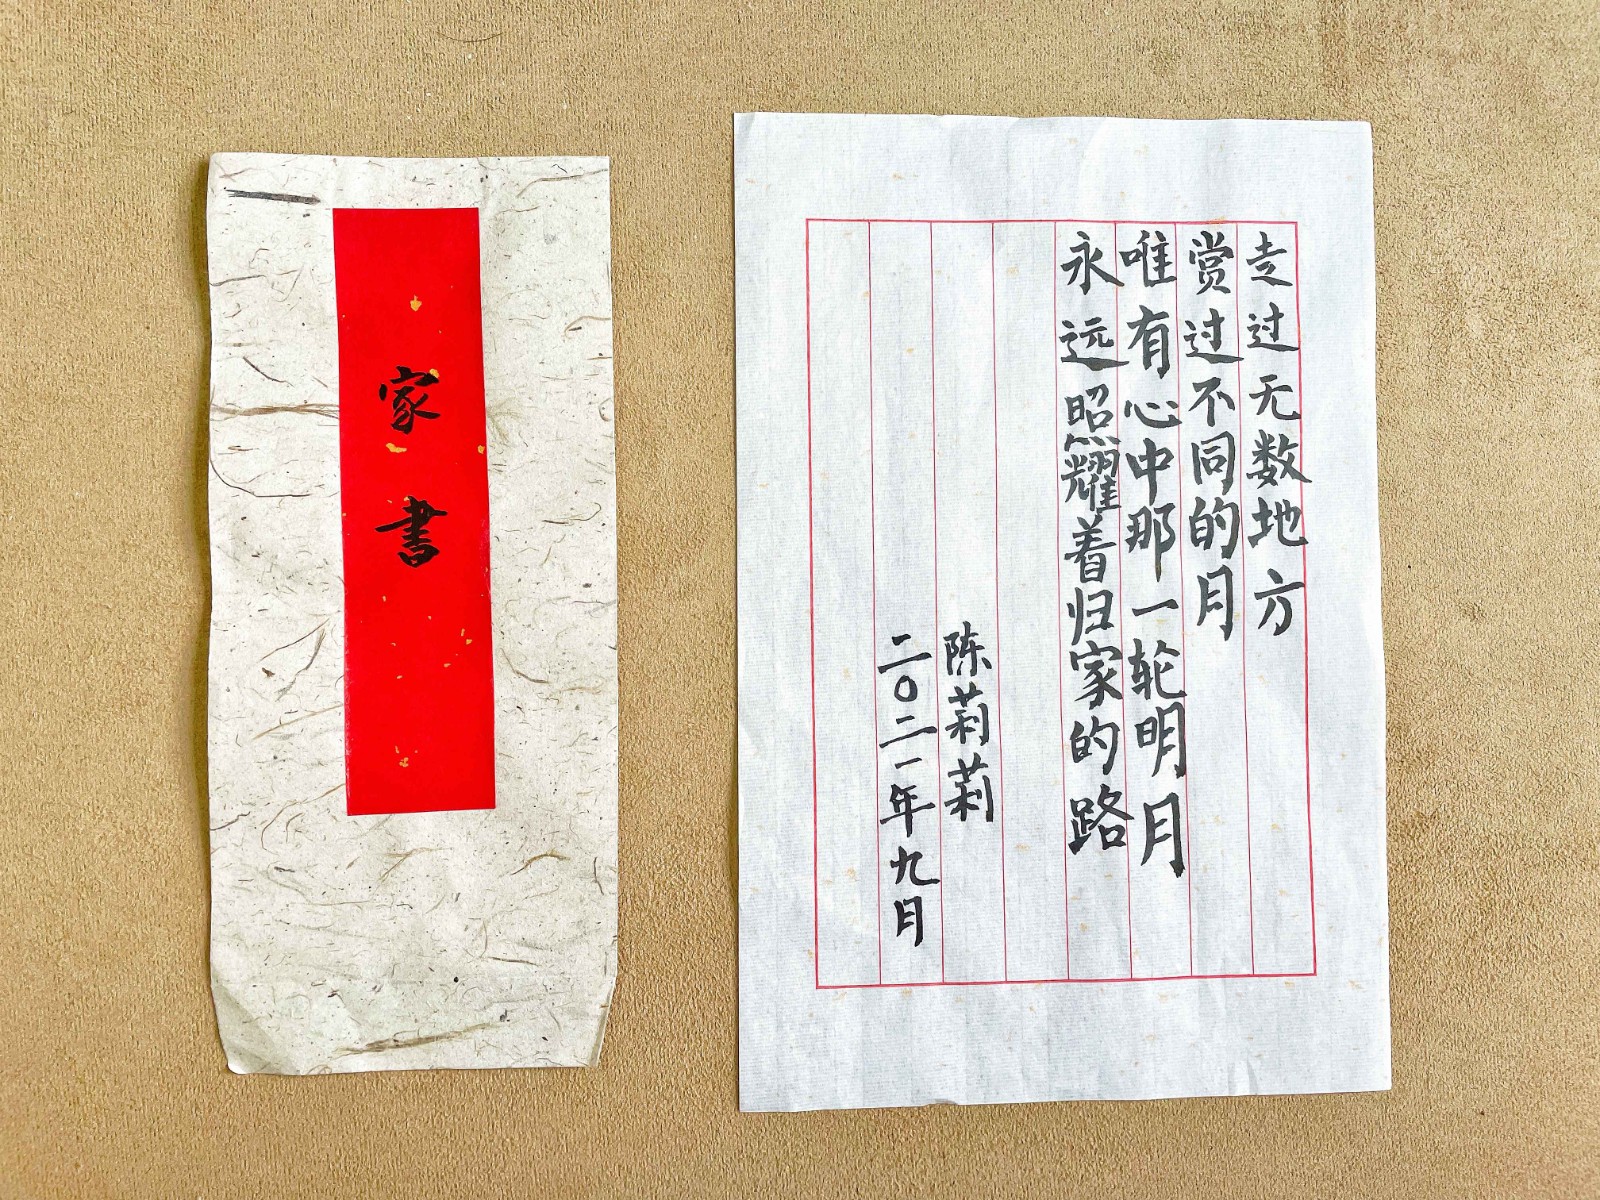 家書
走过无数地方
赏过不同的月
唯有心中那一轮明月
永远照耀着归家的路
陈莉莉
二〇二一年九月